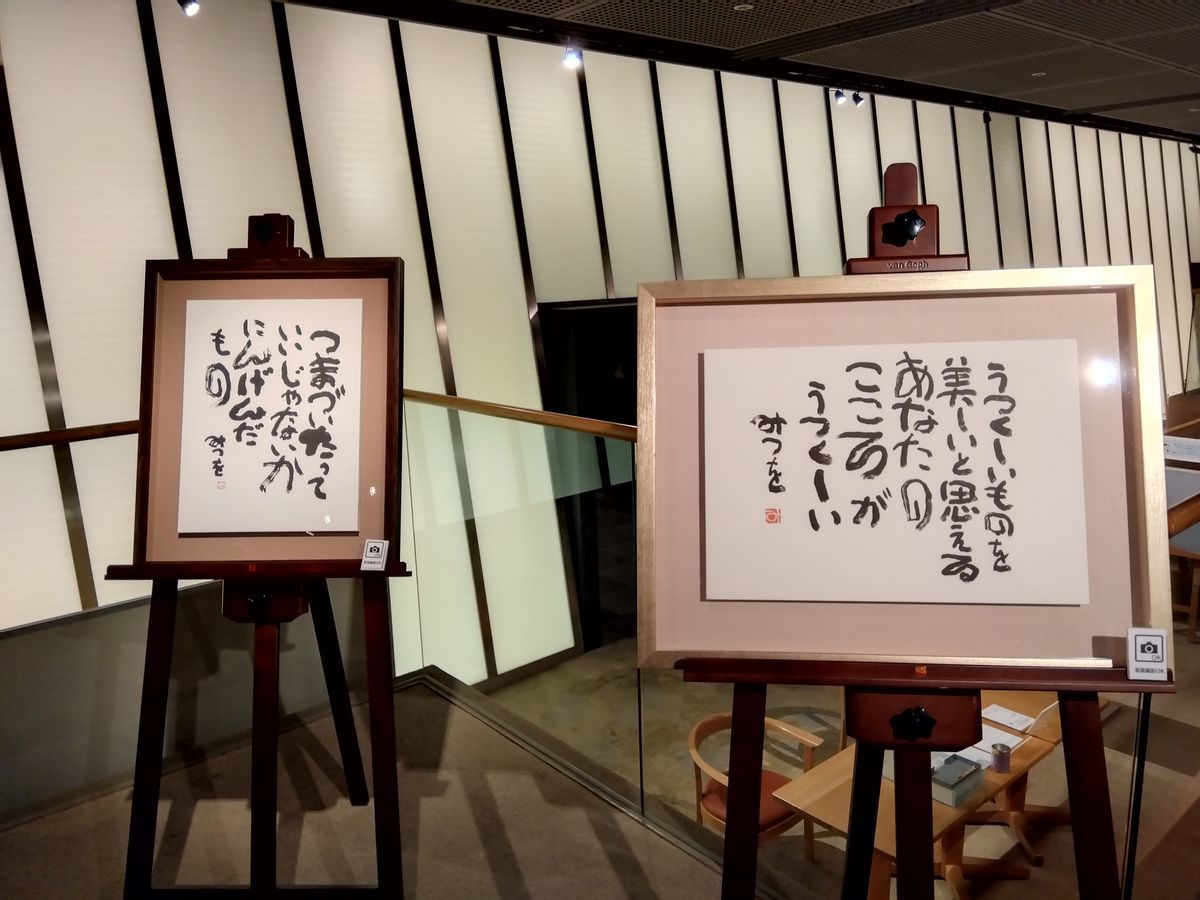 つまづいたって
いいじゃないか
にんげんだ
もの
みつを
van Gogh
うつくしいものを
美しいと思える
あなたの
こころが
うつくしい
みつを
写真撮影OK
OK
写真撮影OK